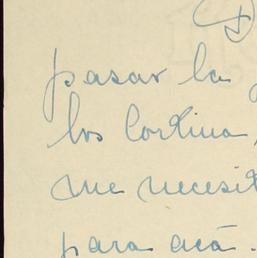 pasar la
los Cortina,
me necesit
para acá.